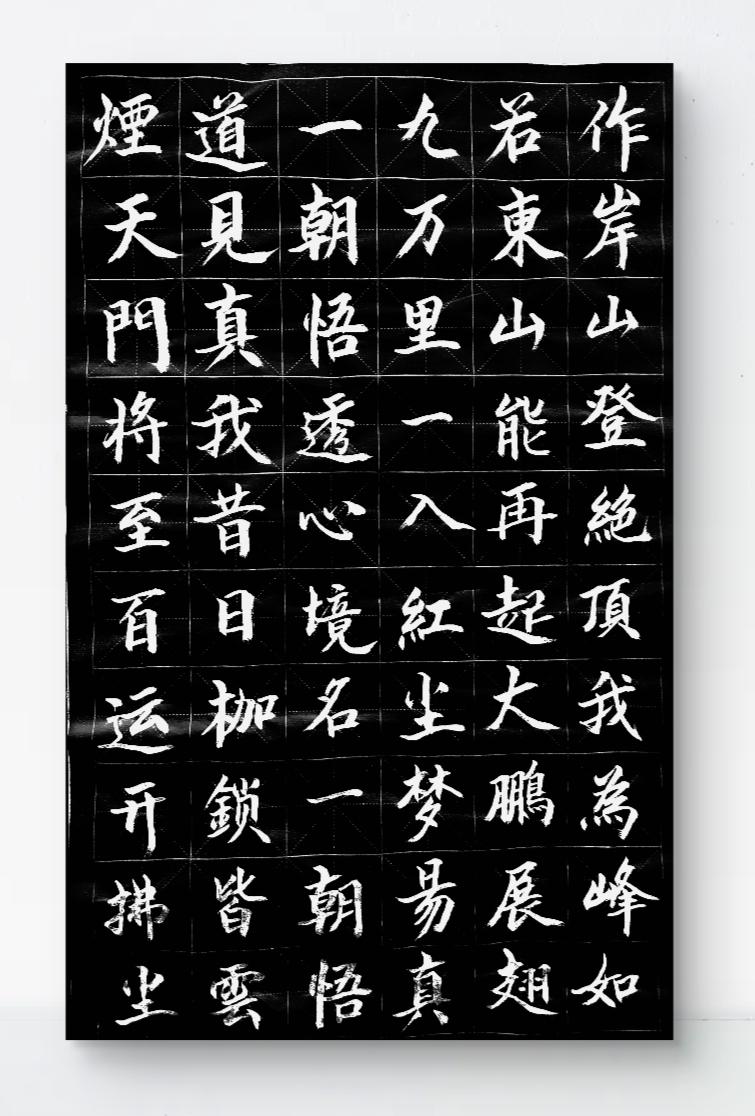 作岸山登絶頂我為峰如
若東山能再起大鵬展翅
九万里一入紅尘梦易真
一朝悟透心境名一朝悟
道見真我昔日枷鎖皆雲
煙天門将至百运开拂尘